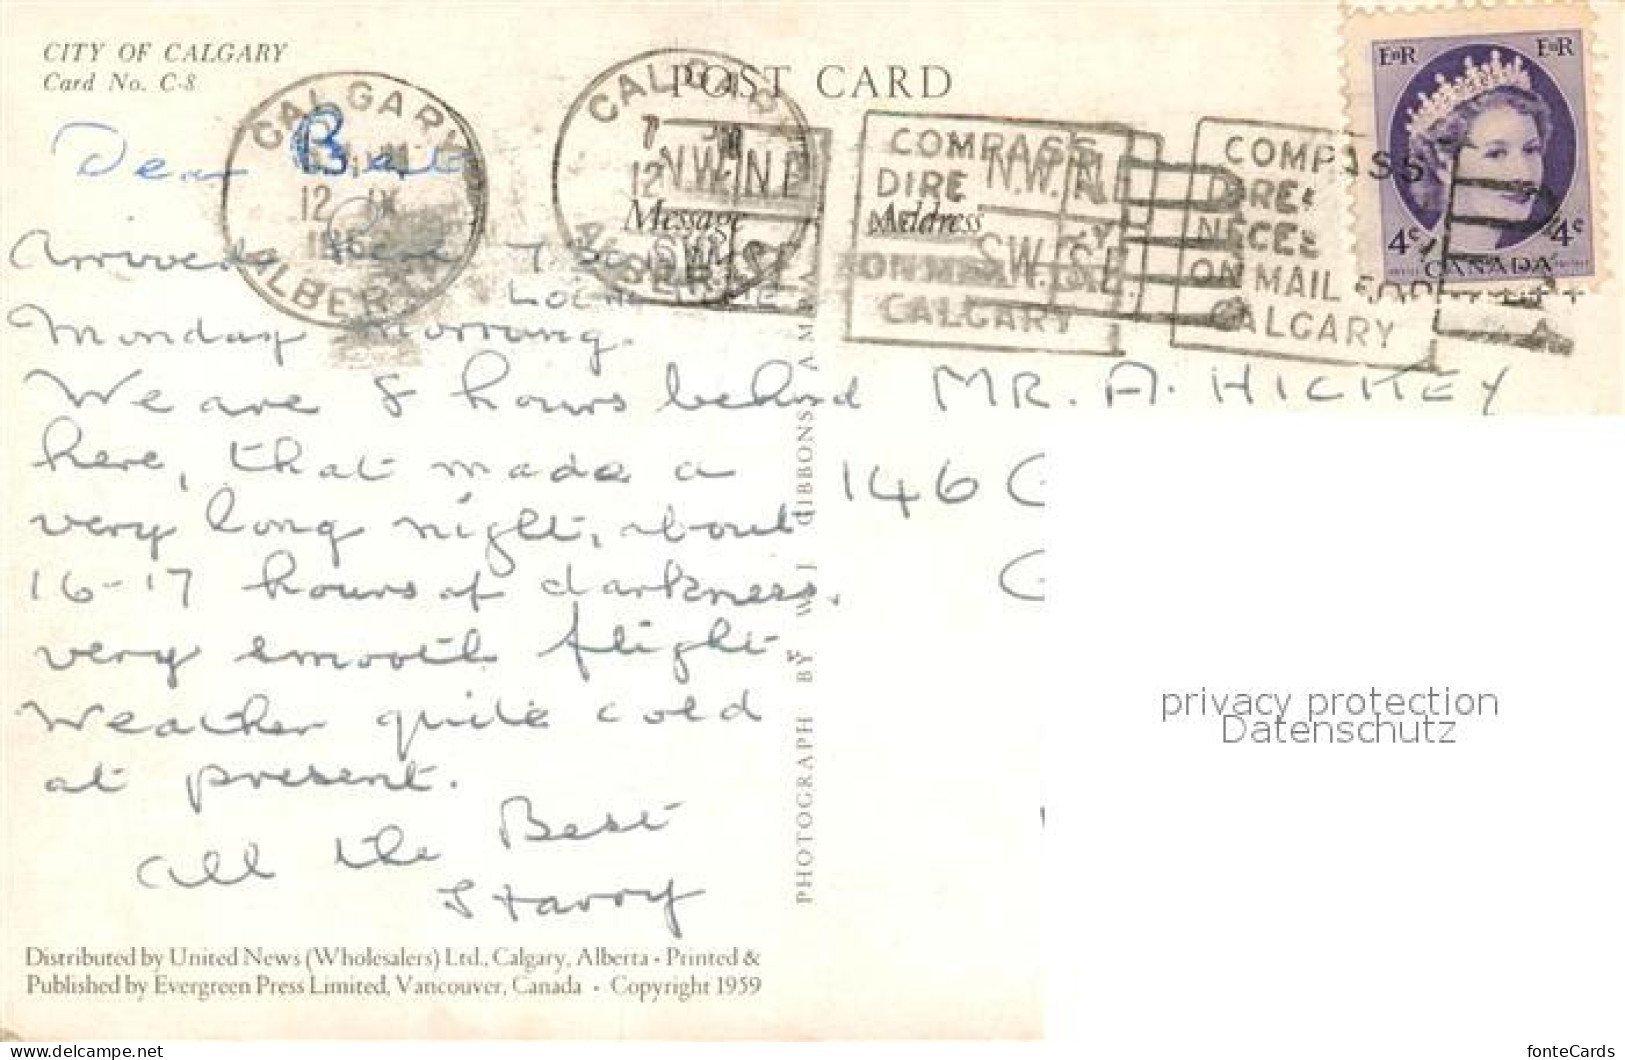 CITY OF CALGARY
Card No. C-8
POST CARD
CALGARY
12 IX
ALBERTA
CALGARY
7
12
ALBERTA
N.W. N.E.
S.W. S.E.
COMPASS
DIRE
ON MAIL
CALGARY
N.W. N.E.
S.W. S.E.
COMPASS
DIREC
NECES
ON MAIL FOR
CALGARY
EIIR EIIR
4c 4c
CANADA
Message
Address
Dear Bert
Arrived here 7.30
LOCAL TIME
Monday morning.
We are 8 hours behind
here, that made a
very long night, about
16-17 hours of darkness.
very smooth flight
Weather quite cold
at present.
All the Best
Harry
MR. A. HICKEY
146 C
PHOTOGRAPH BY W. J. GIBBONS A.M.P.A.
Distributed by United News (Wholesalers) Ltd., Calgary, Alberta • Printed &
Published by Evergreen Press Limited, Vancouver, Canada • Copyright 1959
privacy protection
Datenschutz
www.delcampe.net
fonteCards